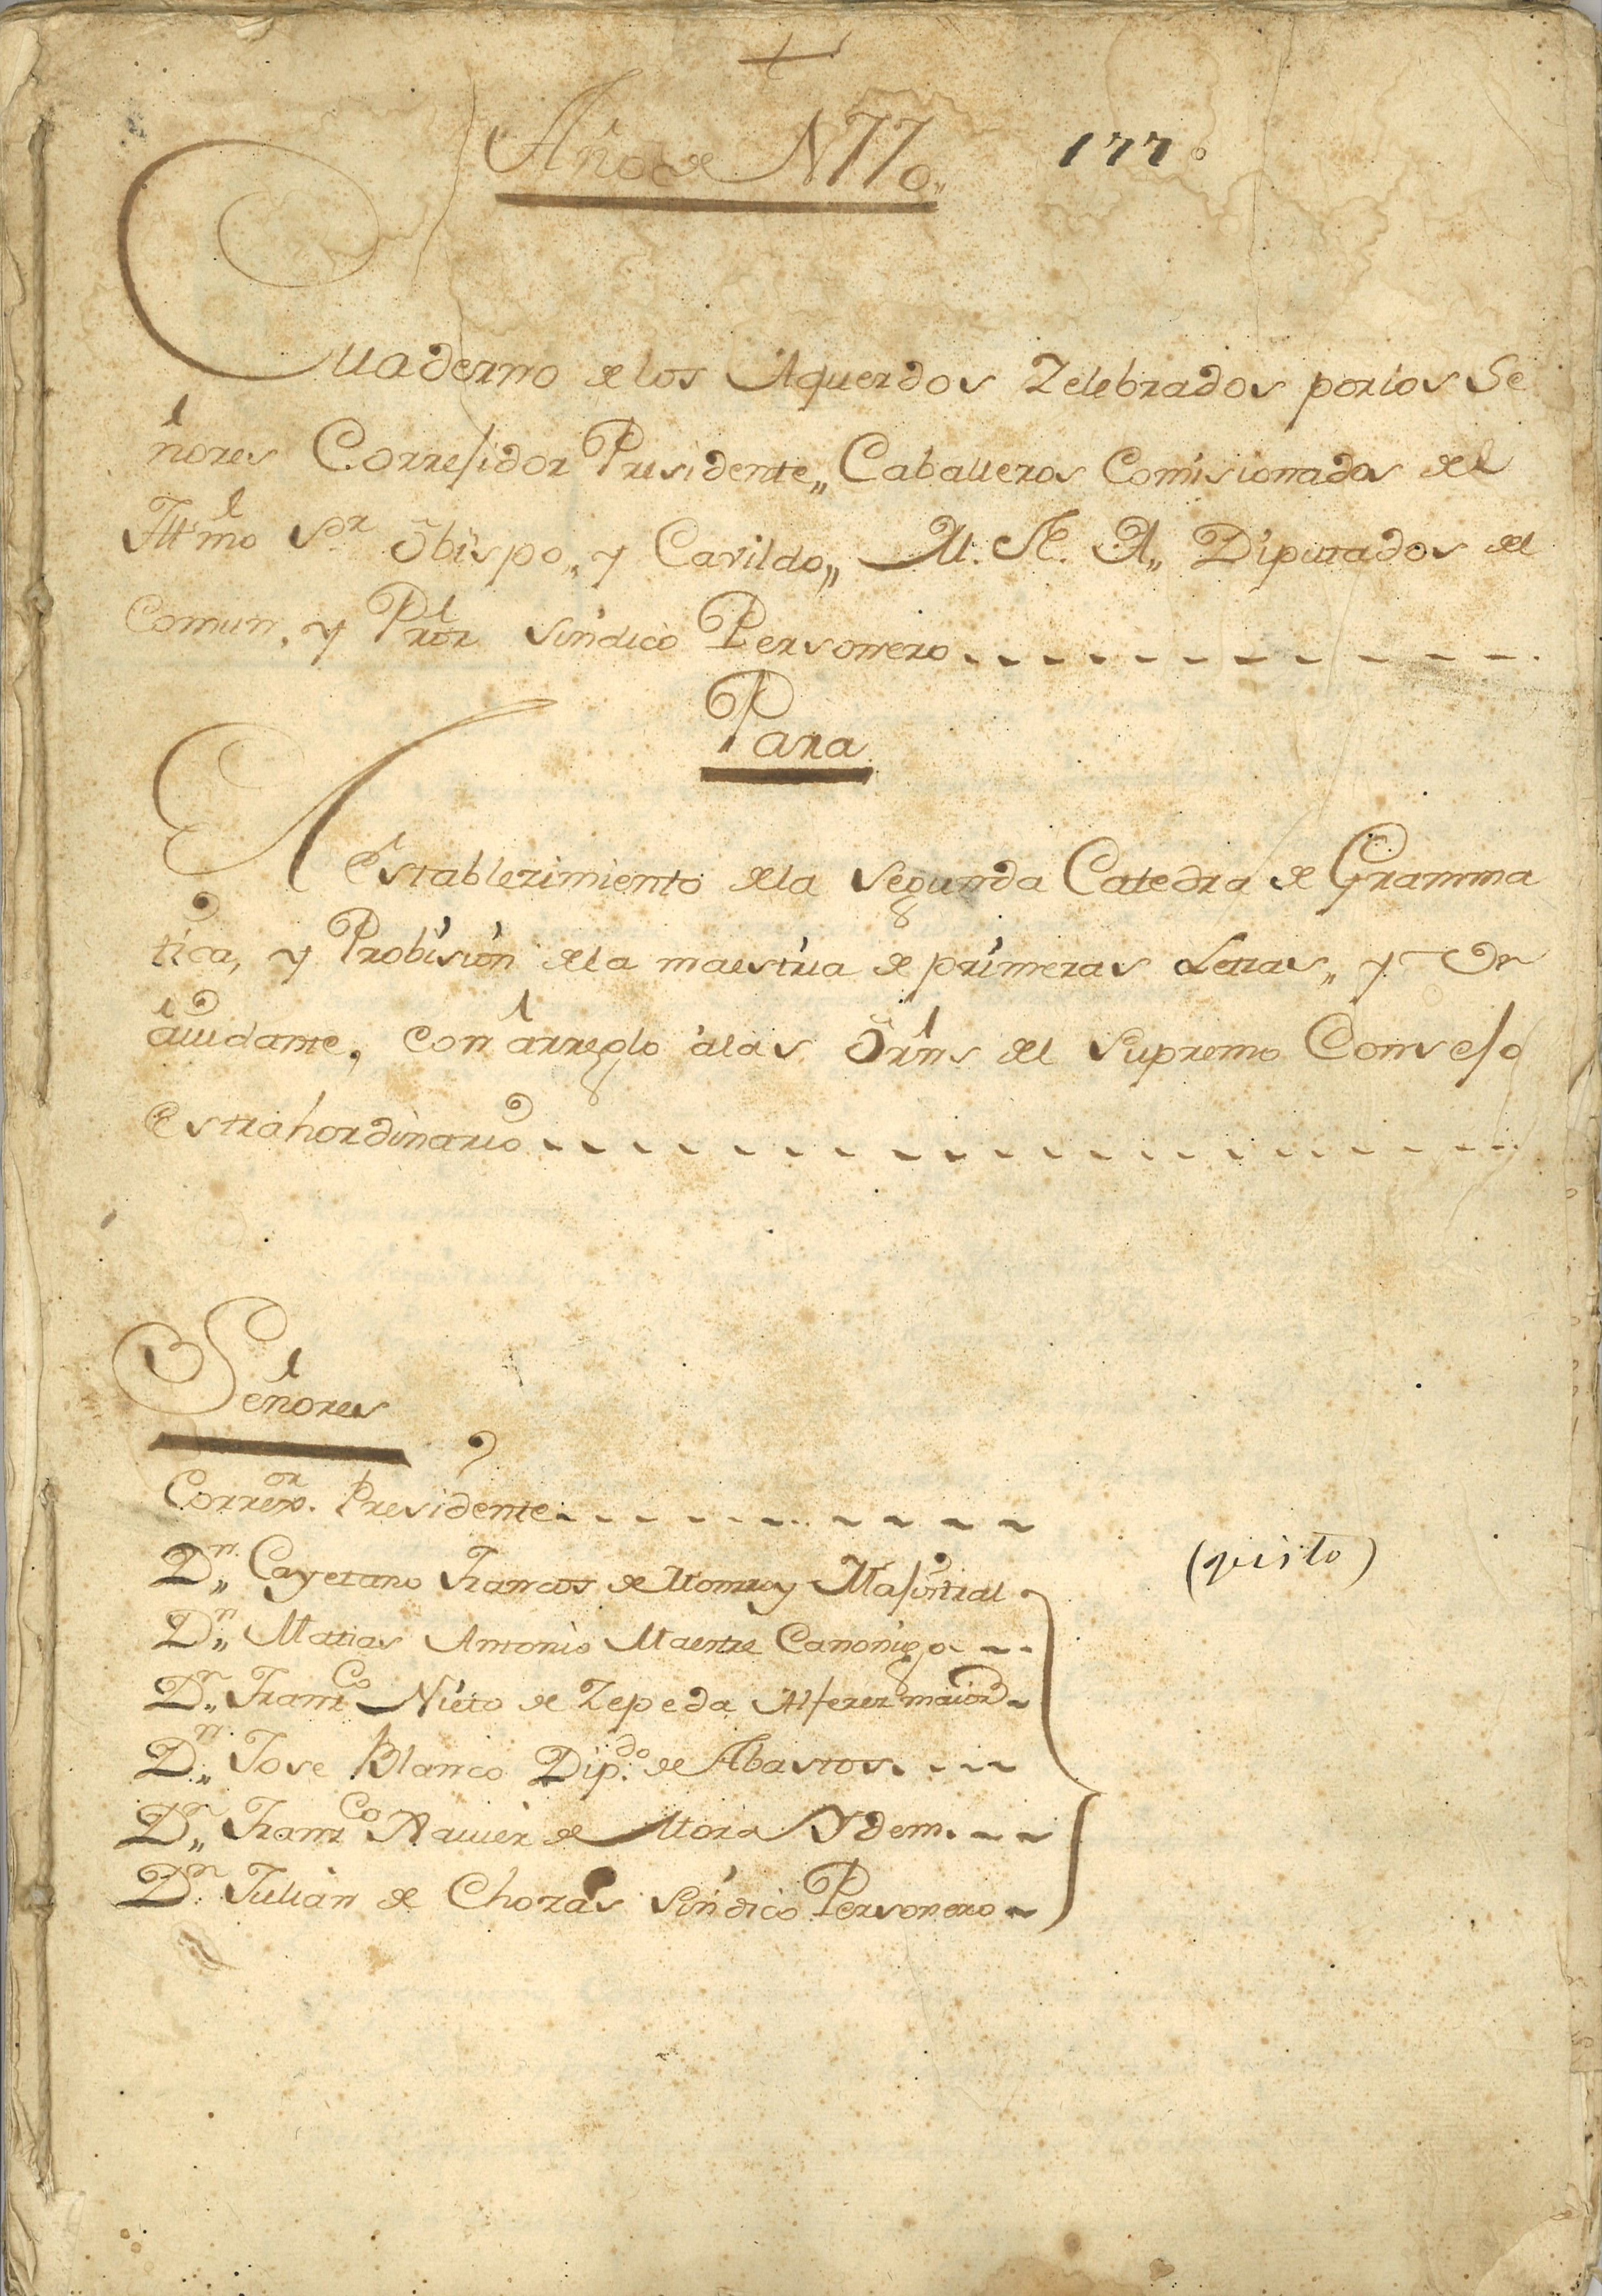 Año de 1770,, 1770
Cuaderno de los Aquerdos Zelebrados por los Se
ñores Correjidor Presidente,, Caballeros Comisionados del
Illmo Sor Obispo,, y Cavildo,, M. N. A,, Diputados del
Comun, y Pror Sindico Personero
Para
Establezimiento de la Segunda Catedra de Gramma
tica, y Probision de la maestria de primeras Letras,, y De
aiudante, con arreglo a las Orns del Supremo Consejo
estrahordinario
Señores
Correor. Presidente
Dn,, Cayetano Francos de Monrroy Majistral
(visto)
Dn,, Matias Antonio Maestre Canonigo
Dn,, Franco Nieto de Zepeda Alferez maior
Dn,, Jose Blanco Dip.do de Abastos
Dn,, Franco Xavier de Mora Ydem.
Dn. Julian de Chozas Sindico Personero